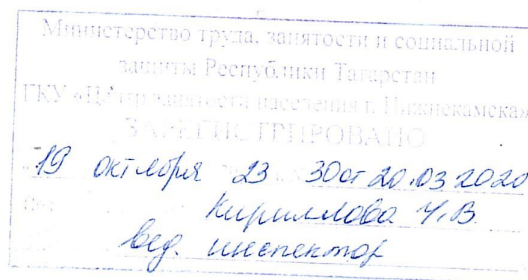 Министерство труда, занятости и социальной
защиты Республики Татарстан
ГКУ «Центр занятости населения г. Нижнекамска»
ЗАРЕГИСТРИРОВАНО
19 октября 23 30 от 20.03 2020
Кириллова Ч.В.
вед. инспектор